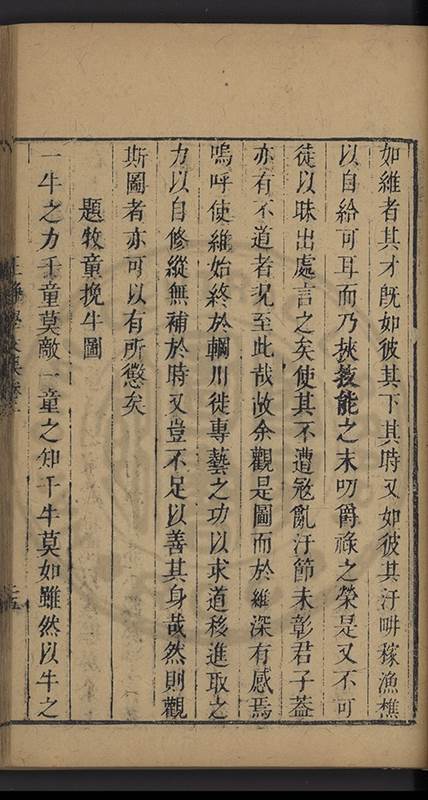 如維者其才旣如彼其下其時又如彼其汙畊稼漁樵
以自給可耳而乃挾技能之末叨爵祿之榮是又不可
徒以昧出處言之矣使其不遭寇亂汙節未彰君子葢
亦有不道者况至此哉故余觀是圖而於維深有感焉
嗚呼使維始終於輞川徙專藝之功以求道移進取之
力以自修縱無補於時又豈不足以善其身哉然則觀
斯圖者亦可以有所懲矣
題牧童挽牛圖
一牛之力千童莫敵一童之知千牛莫如雖然以牛之